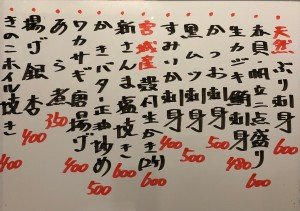 天然 ぶり刺身 600
春貝・帆立二点盛り 600
生カジキ鮪刺身 480
かつお刺身 500
黒ムツ刺身 500
すみいか刺身 400
宮城産 殻付生かき(2ケ) 600
新さんま塩焼き 600
かきバター正油炒め 500
ワカサギ唐揚げ 400
あら煮 350
揚げ銀杏 400
きのこホイル焼き 400